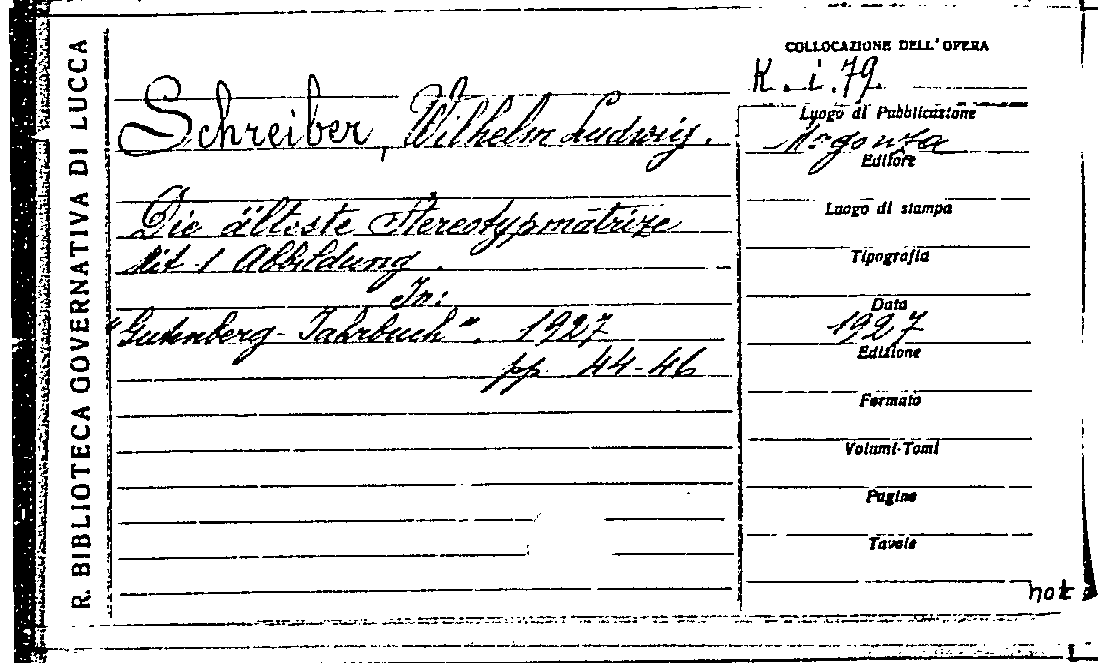 R. BIBLIOTECA GOVERNATIVA DI LUCCA
Schreiber, Wilhelm Ludwig.
Die älteste Stereotypmatrize
Mit 1 Abbildung.
In:
"Gutenberg-Jahrbuch". 1927
pp. 44-46
COLLOCAZIONE DELL'OPERA
K. i. 79.
Luogo di Pubblicazione
Magonza
Editore
Luogo di stampa
Tipografia
Data
1927
Edizione
Formato
Volumi-Tomi
Pagine
Tavole